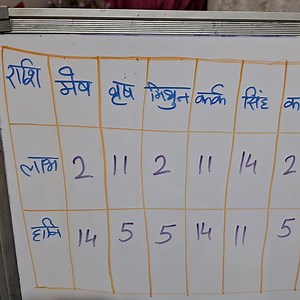 राशि मेष वृष मिथुन कर्क सिंह
लाभ 2 11 2 11 14 2
हानि 14 5 5 14 11 5